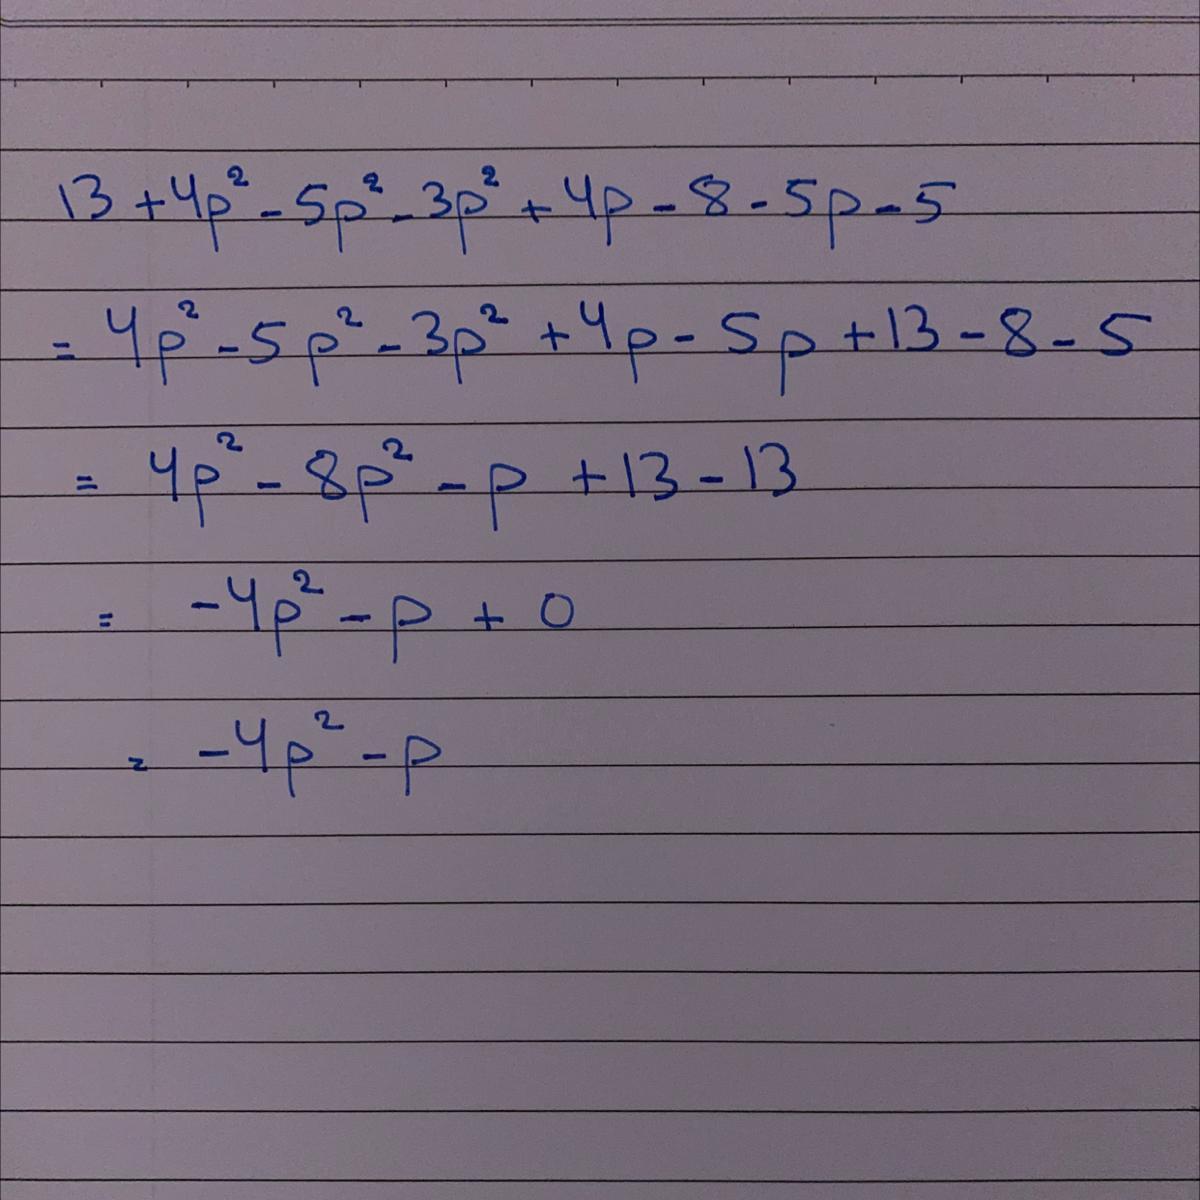 13 + 4p² - 5p² - 3p² + 4p - 8 - 5p - 5
= 4p² - 5p² - 3p² + 4p - 5p + 13 - 8 - 5
= 4p² - 8p² - p + 13 - 13
= -4p² - p + 0
= -4p² - p